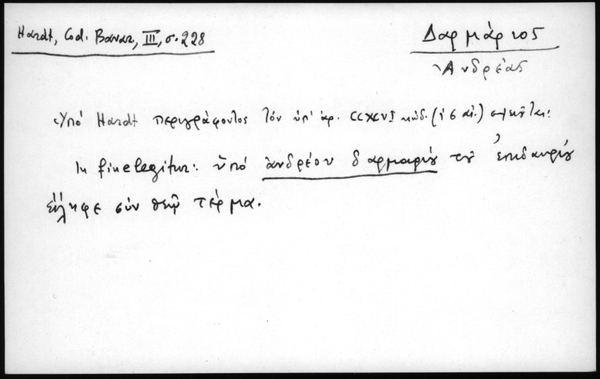 Hardt, Cod. Bavar, III, σ. 228
Δαρμάριος
Ἀνδρέας
Ὑπὸ Hardt περιγράφοντος τὸν ὑπ' ἀρ. CCXCVI κώδ. (ις αἰ.)
In fine legitur: ὑπὸ ἀνδρέου δαρμαρίου τοῦ ἐπιδαυρίου
εἴληφε σὺν θεῷ τέρμα.